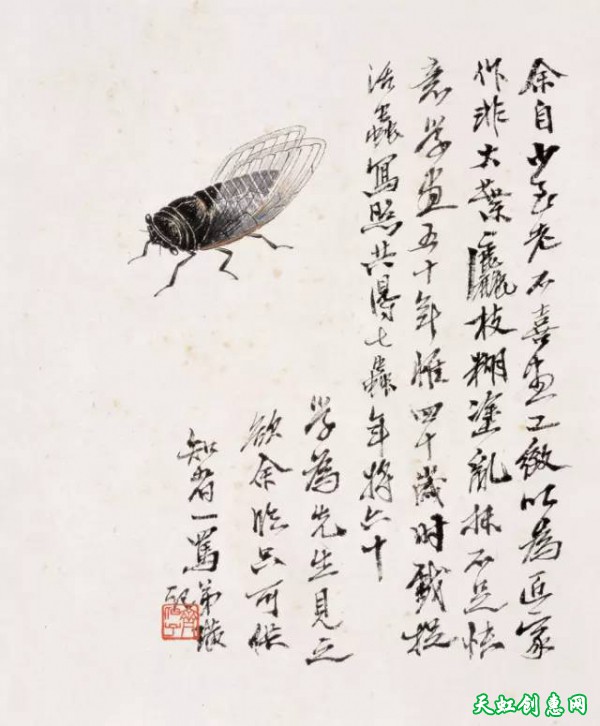 余自少至老不喜画工致以为匠家
作非大叶麤枝糊涂乱抹不足快
意学画五十年惟四十岁时戏捉
活虫写照共得七虫年将六十
学为先生见之
欲余临只可供
知者一骂弟璜
记
天虹创意网